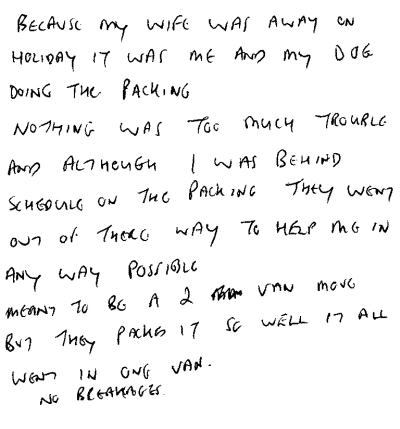 BECAUSE MY WIFE WAS AWAY ON
HOLIDAY IT WAS ME AND MY DOG
DOING THE PACKING
NOTHING WAS TOO MUCH TROUBLE
AND ALTHOUGH I WAS BEHIND
SCHEDULE ON THE PACKING THEY WENT
OUT OF THERE WAY TO HELP ME IN
ANY WAY POSSIBLE
MEANT TO BE A 2 VAN MOVE
BUT THEY PACKED IT SO WELL IT ALL
WENT IN ONE VAN.
NO BREAKAGES.